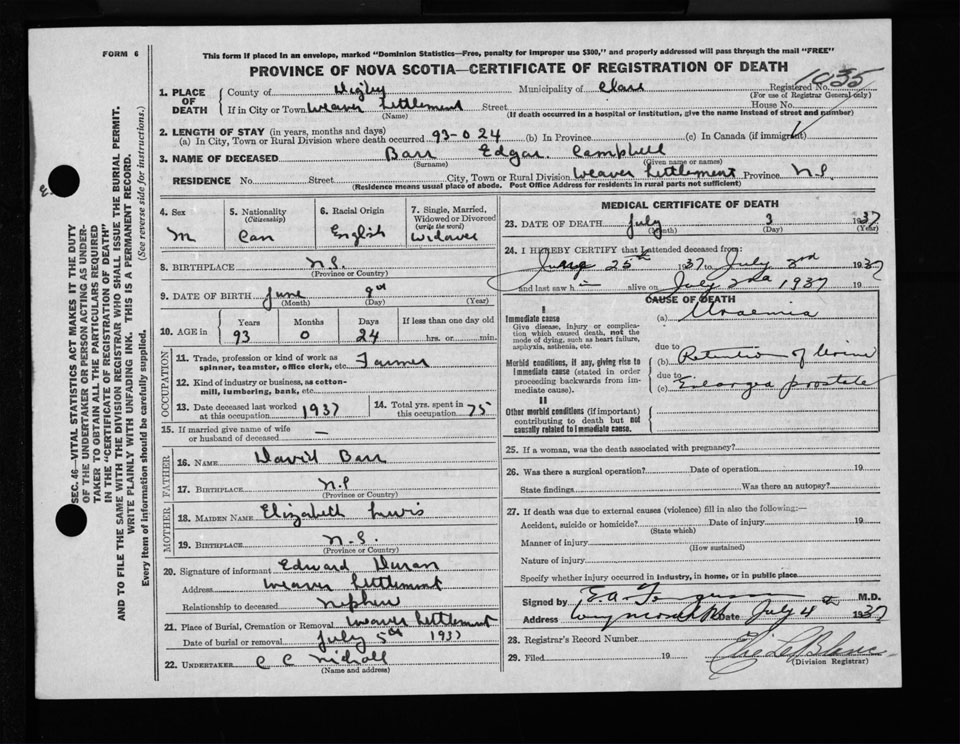 FORM 6
This form if placed in an envelope, marked "Dominion Statistics—Free, penalty for improper use $300," and properly addressed will pass through the mail "FREE"
PROVINCE OF NOVA SCOTIA—CERTIFICATE OF REGISTRATION OF DEATH
1. PLACE OF DEATH
County of Digby Municipality of Clare Registered No.
(For use of Registrar General only)
If in City or Town Weaver Settlement Street House No.
(Name) (If death occurred in a hospital or institution, give the name instead of street and number)
2. LENGTH OF STAY (in years, months and days)
(a) In City, Town or Rural Division where death occurred 93-0 24 (b) In Province (c) In Canada (if immigrant)
3. NAME OF DECEASED Barr Edgar Campbell
(Surname) (Given name or names)
RESIDENCE No. Street City, Town or Rural Division Weaver Settlement Province N.S.
(Residence means usual place of abode. Post Office Address for residents in rural parts not sufficient)
4. Sex
M
5. Nationality
(Citizenship)
Can
6. Racial Origin
English
7. Single, Married, Widowed or Divorced
(write the word)
Widower
8. BIRTHPLACE N.S.
(Province or Country)
9. DATE OF BIRTH June 9th
(Month) (Day) (Year)
10. AGE in
Years Months Days If less than one day old
93 0 24 hrs. or min.
OCCUPATION
11. Trade, profession or kind of work as spinner, teamster, office clerk, etc. Farmer
12. Kind of industry or business, as cotton-mill, lumbering, bank, etc.
13. Date deceased last worked at this occupation 1937
14. Total yrs. spent in this occupation 75
15. If married give name of wife or husband of deceased —
FATHER
16. NAME David Barr
17. BIRTHPLACE N.S
(Province or Country)
MOTHER
18. MAIDEN NAME Elizabeth Lewis
19. BIRTHPLACE N.S.
(Province or Country)
20. Signature of informant Edward
Address Weaver Settlement
Relationship to deceased Nephew
21. Place of Burial, Cremation or Removal Weaver Settlement
Date of burial or removal July 5th 1937
22. UNDERTAKER C C
(Name and address)
MEDICAL CERTIFICATE OF DEATH
23. DATE OF DEATH July 3 1937
(Month) (Day) (Year)
24. I HEREBY CERTIFY that I attended deceased from:
June 25th 1937 to July 3rd 1937
and last saw h im alive on July 2nd 1937 19
CAUSE OF DEATH
I
Immediate cause
Give disease, injury or complication which caused death, not the mode of dying, such as heart failure, asphyxia, asthenia, etc.
(a) Uraemia
due to
Morbid conditions, if any, giving rise to immediate cause (stated in order proceeding backwards from immediate cause).
(b) Retention of Urine
due to
(c) Enlarged prostate
II
Other morbid conditions (if important) contributing to death but not causally related to immediate cause.
25. If a woman, was the death associated with pregnancy?
26. Was there a surgical operation? Date of operation 19
State findings Was there an autopsy?
27. If death was due to external causes (violence) fill in also the following:—
Accident, suicide or homicide? Date of injury 19
(State which)
Manner of injury
(How sustained)
Nature of injury
Specify whether injury occurred in industry, in home, or in public place
Signed by M.D.
Address Weymouth Date July 4th 1937
28. Registrar's Record Number
29. Filed 19
(Division Registrar)
SEC. 46—VITAL STATISTICS ACT MAKES IT THE DUTY
OF THE UNDERTAKER OR PERSON ACTING AS UNDERTAKER TO OBTAIN ALL THE PARTICULARS REQUIRED
IN THE "CERTIFICATE OF REGISTRATION OF DEATH"
AND TO FILE THE SAME WITH THE DIVISION REGISTRAR WHO SHALL ISSUE THE BURIAL PERMIT.
WRITE PLAINLY WITH UNFADING INK. THIS IS A PERMANENT RECORD.
Every item of information should be carefully supplied. (See reverse side for instructions.)